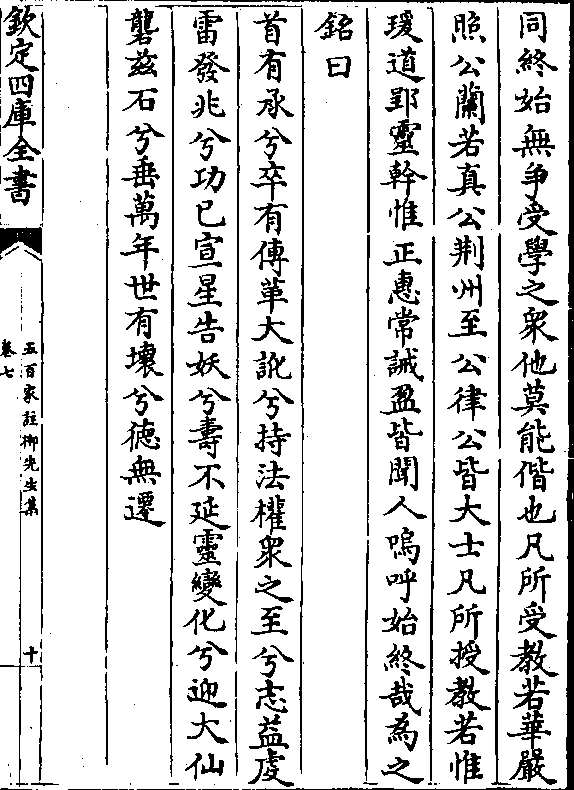 同終始無争受學之衆他莫能偕也凡所受教若華嚴
照公蘭若真公荆州至公律公皆大士凡所授教若惟
瑗道郢靈幹惟正惠常誡盈皆聞人嗚呼始終哉為之
銘曰
首有承兮卒有傳革大訛兮持法權衆之至兮志益虔
雷發兆兮功已宣星告妖兮壽不延靈變化兮迎大仙
礱兹石兮垂萬年世有壞兮德無遷
欽定四庫全書
五百家註栁先生集
卷七
十